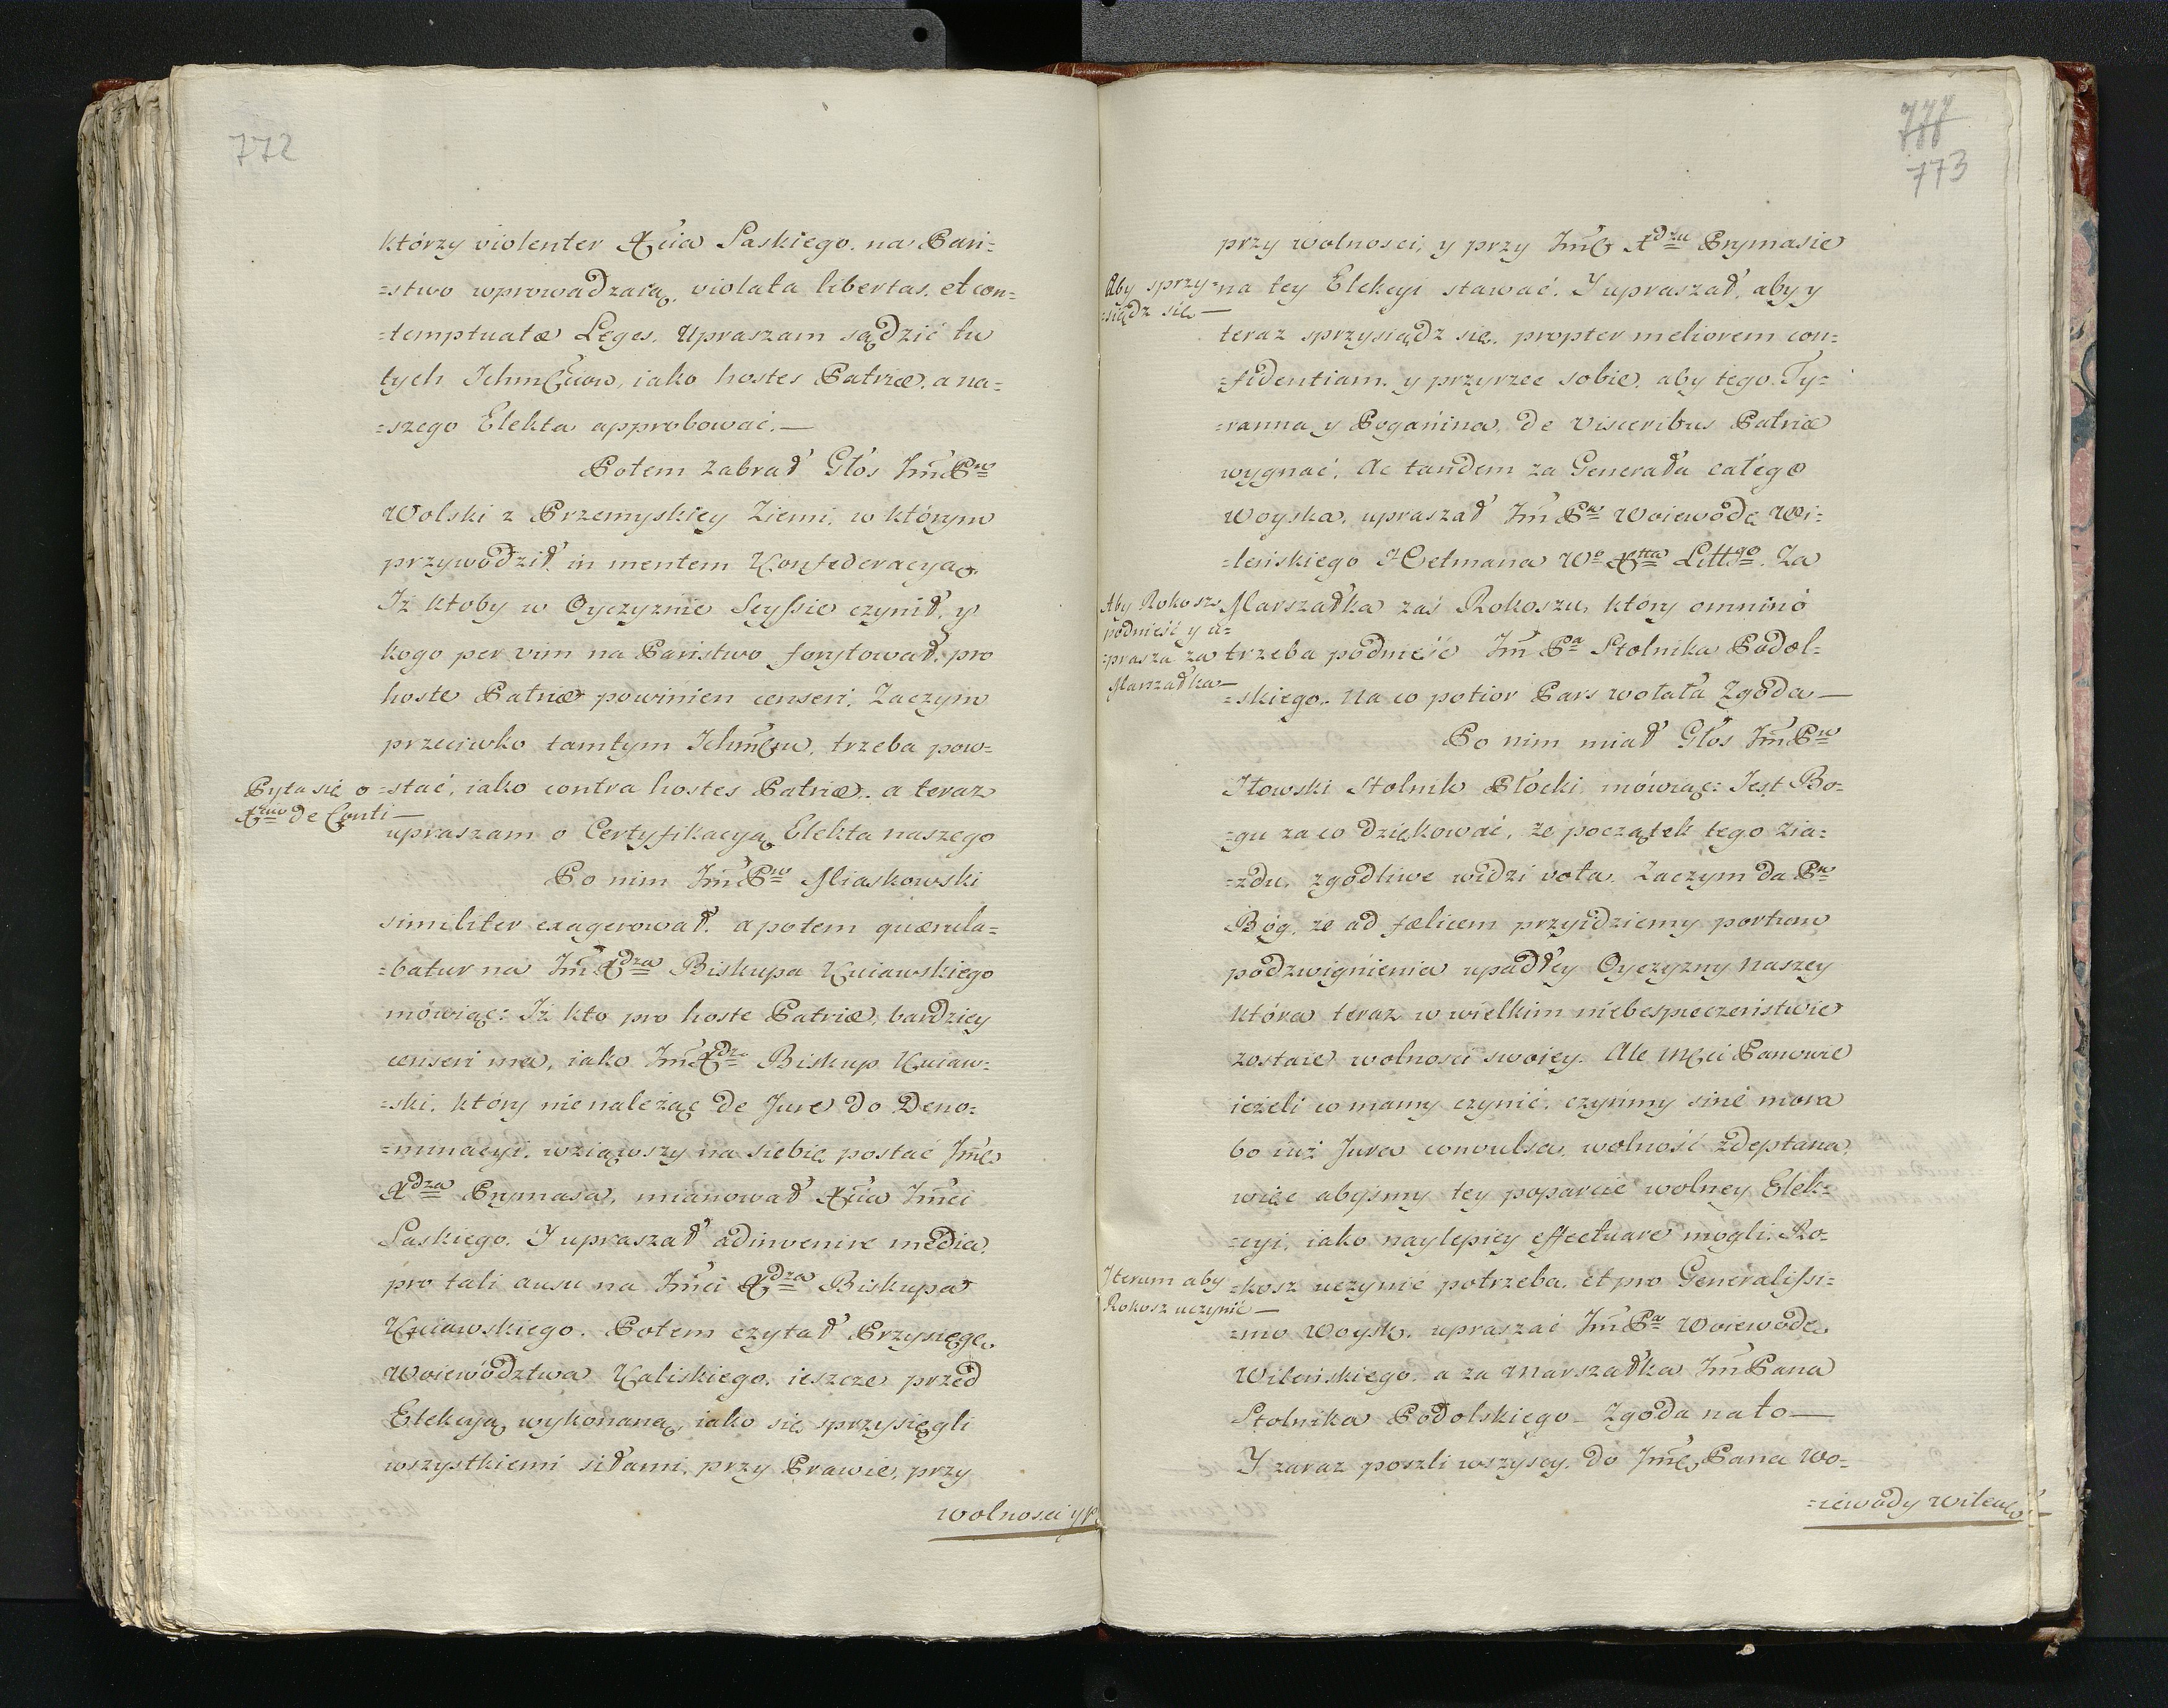 772
którzy violenter Xcia Saskiego na Pań=
=stwo wprowadzaią, violata libertas, et con=
=temptuatæ Leges. Upraszam sądzić tu
tych Ichmściow, iako hostes Patriæ, a na=
=szego Elekta approbować.—
Potem zabrał Głos Jm̃ Pn
Wolski z Przemyskiey Ziemi, w którym
przywodził in mentem Konfederacyą.
Iż ktoby w Oyczyznie Scyssie czynił, y
kogo per vim na Państwo forytował, pro
hoste Patriæ powinien censeri. Zaczym
przeciwko tamtym Ichmściu, trzeba pow=
Pyta się o
=stać, iako contra hostes Patriæ, a teraz
de Conti—
upraszam o Certyfikacyą Elekta naszego
Po nim Jm̃ Pn Miaskowski
similiter exagerował, a potem quærula=
=batur na Jm̃ Xdza Biskupa Kuiawskiego
mówiąc: Iż kto pro hoste Patriæ, bardziey
censeri ma, iako Jm̃ Xdz Biskup Kuiaw=
=ski, który nie należąc de Jure do Deno=
=minacyi, wziąwszy na siebie postać Jmc
Xdza Prymasa, mianował Xcia Jmci
Saskiego. Y upraszał adinvenire media,
pro tali ausu na Jmci Xdza Biskupa
Kuiawskiego. Potem czytał Przysięgę
Woiewództwa Kaliskiego, ieszcze przed
Elekcyą wykonaną, iako się sprzysięgli
wszystkiemi siłami, przy Prawie, przy
wolności y p
777
773
przy wolności, y przy Jmć Xdzu Prymasie
Aby sprzy=
na tey Elekcyi stawać. Y upraszał, aby y
=siądz się—
teraz sprzysiądz się, propter meliorem con=
=fidentiam, y przyrzec sobie, aby tego Ty=
=ranna y Poganina, de visceribus Patriæ
wygnać. Ac tandem za Generała całego
Woyska, upraszał Jm̃ Pn Woiewodę Wi=
=leńskiego Hetmana Wo Xtta Littgo. Za
Aby Rokosz
Marszałka zaś Rokoszu, który omninò
podnieść y u=
=prasza za
trzeba podnieść Jm̃ Pa Stolnika Podol=
Marszałka—
=skiego. Na co potior Pars wołała Zgoda—
Po nim miał Głos Jm̃ Pn
Iłowski Stolnik Płocki mówiąc: Jest Bo=
=gu za co dziękować, że początek tego zia=
=zdu, zgodliwe widzi vota. Zaczym da Pn
Bóg, że ad fælicem przyidziemy portum
podzwignienia upadłey Oyczyzny naszey
która teraz w wielkim niebespieczeństwie
zostaie wolności swoiey. Ale Mści Panowie
ieżeli co mamy czynić, czyńmy sine mora
bo iuż Jura convulsa, wolność zdeptana,
więc abyśmy tey poparcie wolney Elek=
=cyi, iako naylepiey effectuare mogli, Ro=
Iterum aby
=kosz uczynić potrzeba, et pro Generalissi=
Rokosz uczynić—
=mo Woysk, upraszać Jm̃ Pa Woiewodę
Wileńskiego, a za Marszałka Jm̃ Pana
Stolnika Podolskiego— Zgoda na to—
Y zaraz poszli wszyscy, do Jmć Pana Wo=
=iewody Wileń